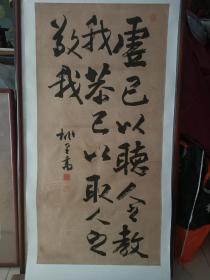 虛己以聽人之教
我恭己以取人之
敬我